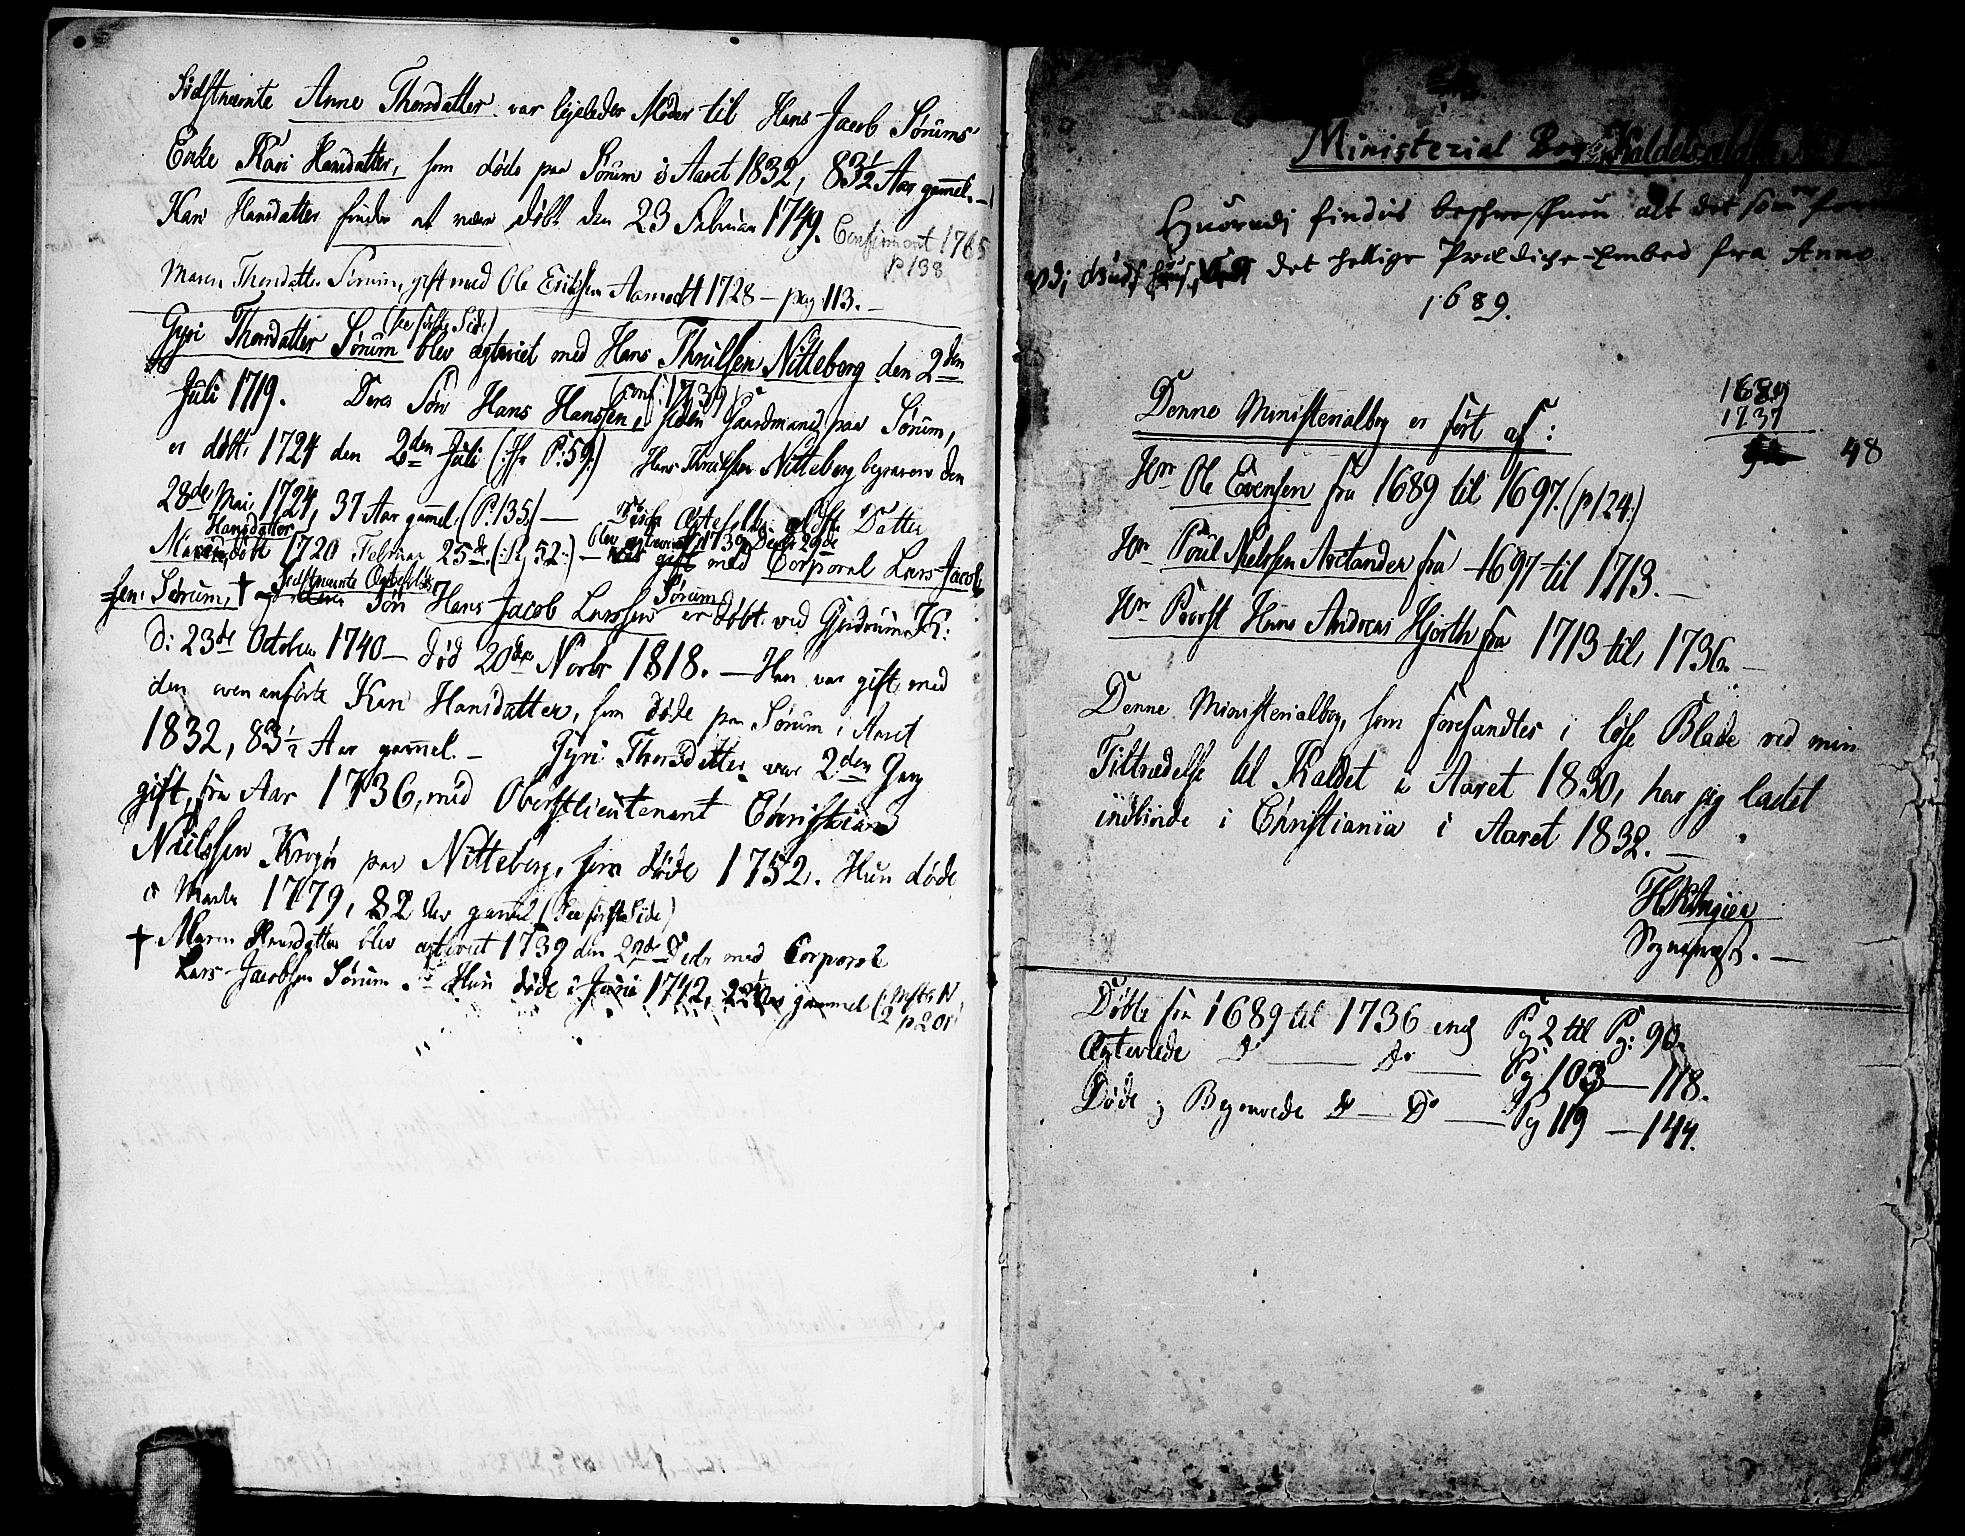 Sidstnævnte Anne Thorsdatter var ligeledes Moder til Hans Jacob Sørums
Enke Kari Hansdatter, som døde paa Sørum i Aaret 1832, 83½ Aar gammel.—
Kari Hansdatter findes at være døbt den 23 Februar 1749. Confirmeret 1765
p 138
Maren Thorsdatter Sørum, gift med Ole Eriksen Aamodt 1728 — pag: 113.—
(see første Side)
Gyri Thorsdatter Sørum blev ægteviet med Hans Thruelsen Nitteberg den 2den
Juli 1719. Deres Søn Hans Hanssen, siden Gaardmand paa Sørum,
(conf: 1739)
er døbt 1724 den 2den Juli (P: 59:) Hans Thruelsen Nitteberg begraven den
28de Mai 1724, 37 Aar gammel. (P. 135) — Disse Ægtefolks ældste Datter
Hansdatter
Maren, døbt 1720 Februar 25de (: Pg 52:) — med Corporal Lars Jacob-
blev ægteviet 1739 Decbr 29de
sen Sørum, † Søn Hans Jacob Larssen Sørum er døbt ved Gjerdrum K:
Sidstnævnte Ægtefolks
D: 23de October 1740 — død 20de Novbr 1818. — Han var gift med
den ovenanførte Kari Hansdatter, som døde paa Sørum i Aaret
1832, 83½ Aar gammel. — Gyri Thorsdatter var 2den Gang
gift, fra Aar 1736, med Oberstlieutenant Christian
Nielssen Krogh paa Nitteberg, som døde 1752. Hun døde
i Marts 1779, 82 Aar gammel (See første Side)
† Maren Hansdatter blev ægteviet 1739 den 29de Decbr med Corporal
Lars Jacobsen Sørum. — Hun døde i Juni 1742, 22½ Aar gammel (
2 p 201
Ministerial Bog Kaldet No 1
Huorudj findis beschreffuen alt det som
det hellige Prædiche-Embed fra Anno
1689.
1689
1737
48
Denne Ministerialbog er ført af:
Hrr Ole Evensen fra 1689 til 1697. (p 124:)
Hrr Poul Nielssen Arctander fra 1697 til 1713.—
Hrr Provst Hans Andreas Hjorth fra 1713 til 1736.—
Denne Ministerialbog, som forefandtes i løse Blade ved min
Tiltrædelse til Kaldet i Aaret 1830, har jeg ladet
indbinde i Christiania i Aaret 1832.—
Sognepræst.—
Døbte fra 1689 til 1736 incl Pg 2 til Pg: 90.
Ægteviede Do — Do — Pg 103 — 118.
Døde og Begravede Do — Do — Pg 119 — 144.